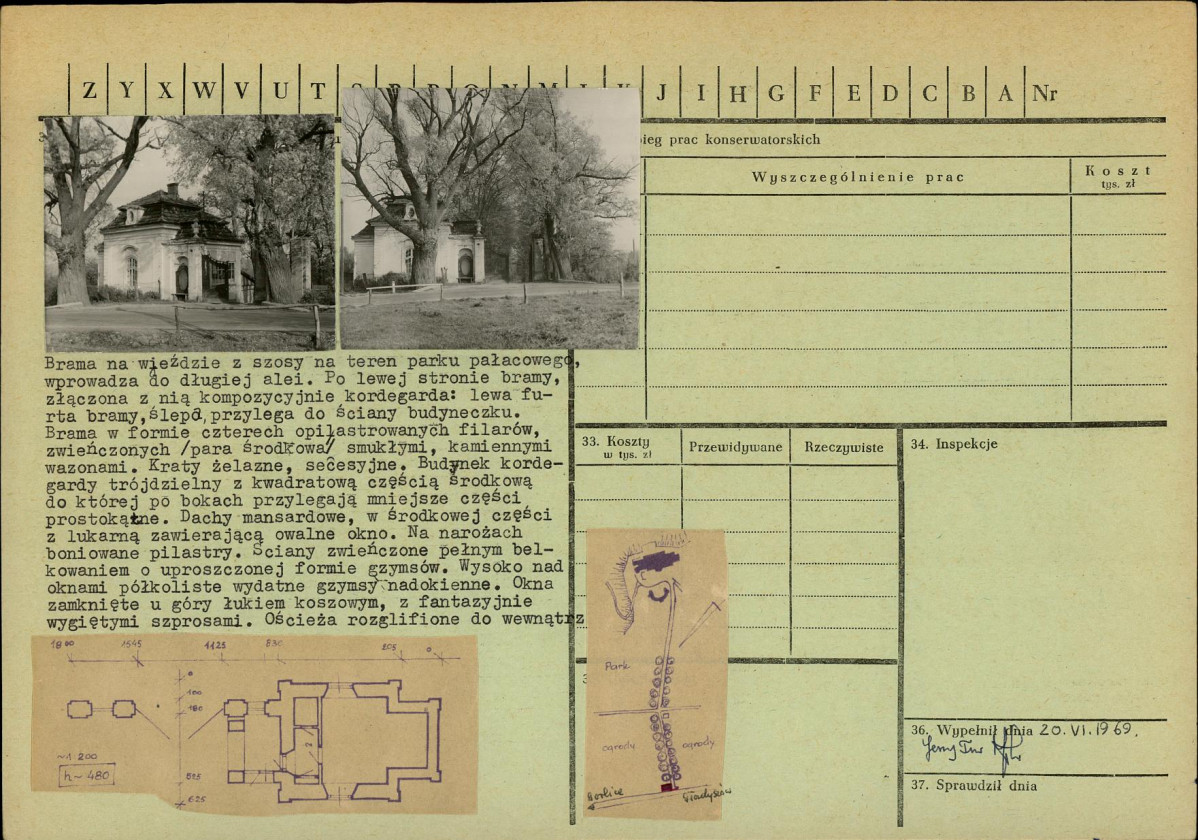 Z Y X W V U T J I H G F E D C B A Nr
ieg prac konserwatorskich
Wyszczególnienie prac
Koszt
tys. zł
Brama na wieździe z szosy na teren parku pałacowego,
wprowadza do długiej alei. Po lewej stronie bramy,
złączona z nią kompozycyjnie kordegarda: lewa fu-
rta bramy, ślepa, przylega do ściany budyneczku.
Brama w formie czterech opilastrowanych filarów,
zwieńczonych /para środkowa/ smukłymi, kamiennymi
wazonami. Kraty żelazne, secesyjne. Budynek korde-
gardy trójdzielny z kwadratową częścią środkową
do której po bokach przylegają mniejsze części
prostokątne. Dachy mansardowe, w środkowej części
z lukarną zawierającą owalne okno. Na narożach
boniowane pilastry. Ściany zwieńczone pełnym bel-
kowaniem o uproszczonej formie gzymsów. Wysoko nad
oknami półkoliste wydatne gzymsy nadokienne. Okna
zamknięte u góry łukiem koszowym, z fantazyjnie
wygiętymi szprosami. Ościeża rozglifione do wewnątrz
33. Koszty
w tys. zł
Przewidywane
Rzeczywiste
34. Inspekcje
1800 1545 1125 830 205 0
0
100
180
515
625
~1:200
h~480
Park
ogrody
ogrody
Gorlice
36. Wypełnił dnia 20.VI.1969.
37. Sprawdził dnia